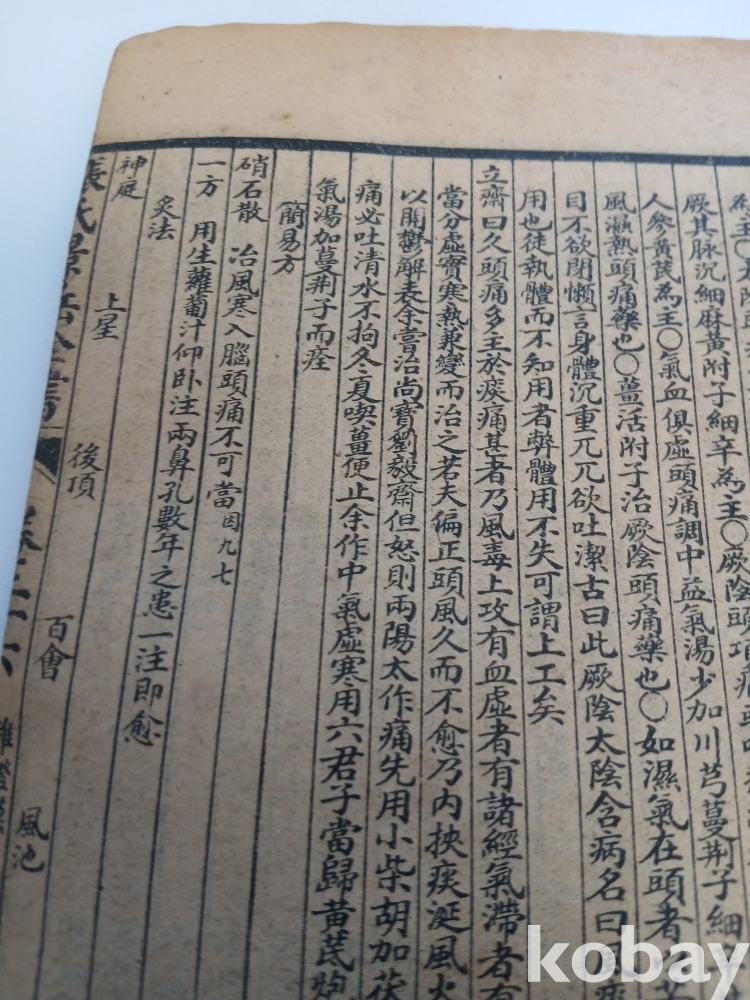 為主〇
厥其脉沉細麻黄附子細辛為主〇厥陰頭項痛
人參黄芪為主〇氣血俱虛頭痛調中益氣湯少加川芎蔓荆子細
風濕熱頭痛藥也〇薑活附子治厥陰頭痛藥也〇如濕氣在頭者
目不欲閉懶言身體沉重兀兀欲吐潔古曰此厥陰太陰合病名曰風
用也徒執體而不知用者弊體用不失可謂上工矣
立齋曰久頭痛多主於痰痛甚者乃風毒上攻有血虛者有諸經氣滯者有
當分虛實寒熱兼變而治之若夫偏正頭風久而不愈乃内挾痰涎風火
以開鬱解表余嘗治尚寶劉毅齋但怒則兩陽太作痛先用小柴胡加茯
痛必吐清水不拘冬夏喫薑便止余作中氣虛寒用六君子當歸黄芪炮
氣湯加蔓荆子而痊
簡易方
硝石散 治風寒入腦頭痛不可當 因九七
一方 用生蘿蔔汁仰卧注兩鼻孔數年之患一注即愈
灸法
神庭 上星 後頂 百會 風池
張氏景岳全書
雜證謨
kobay